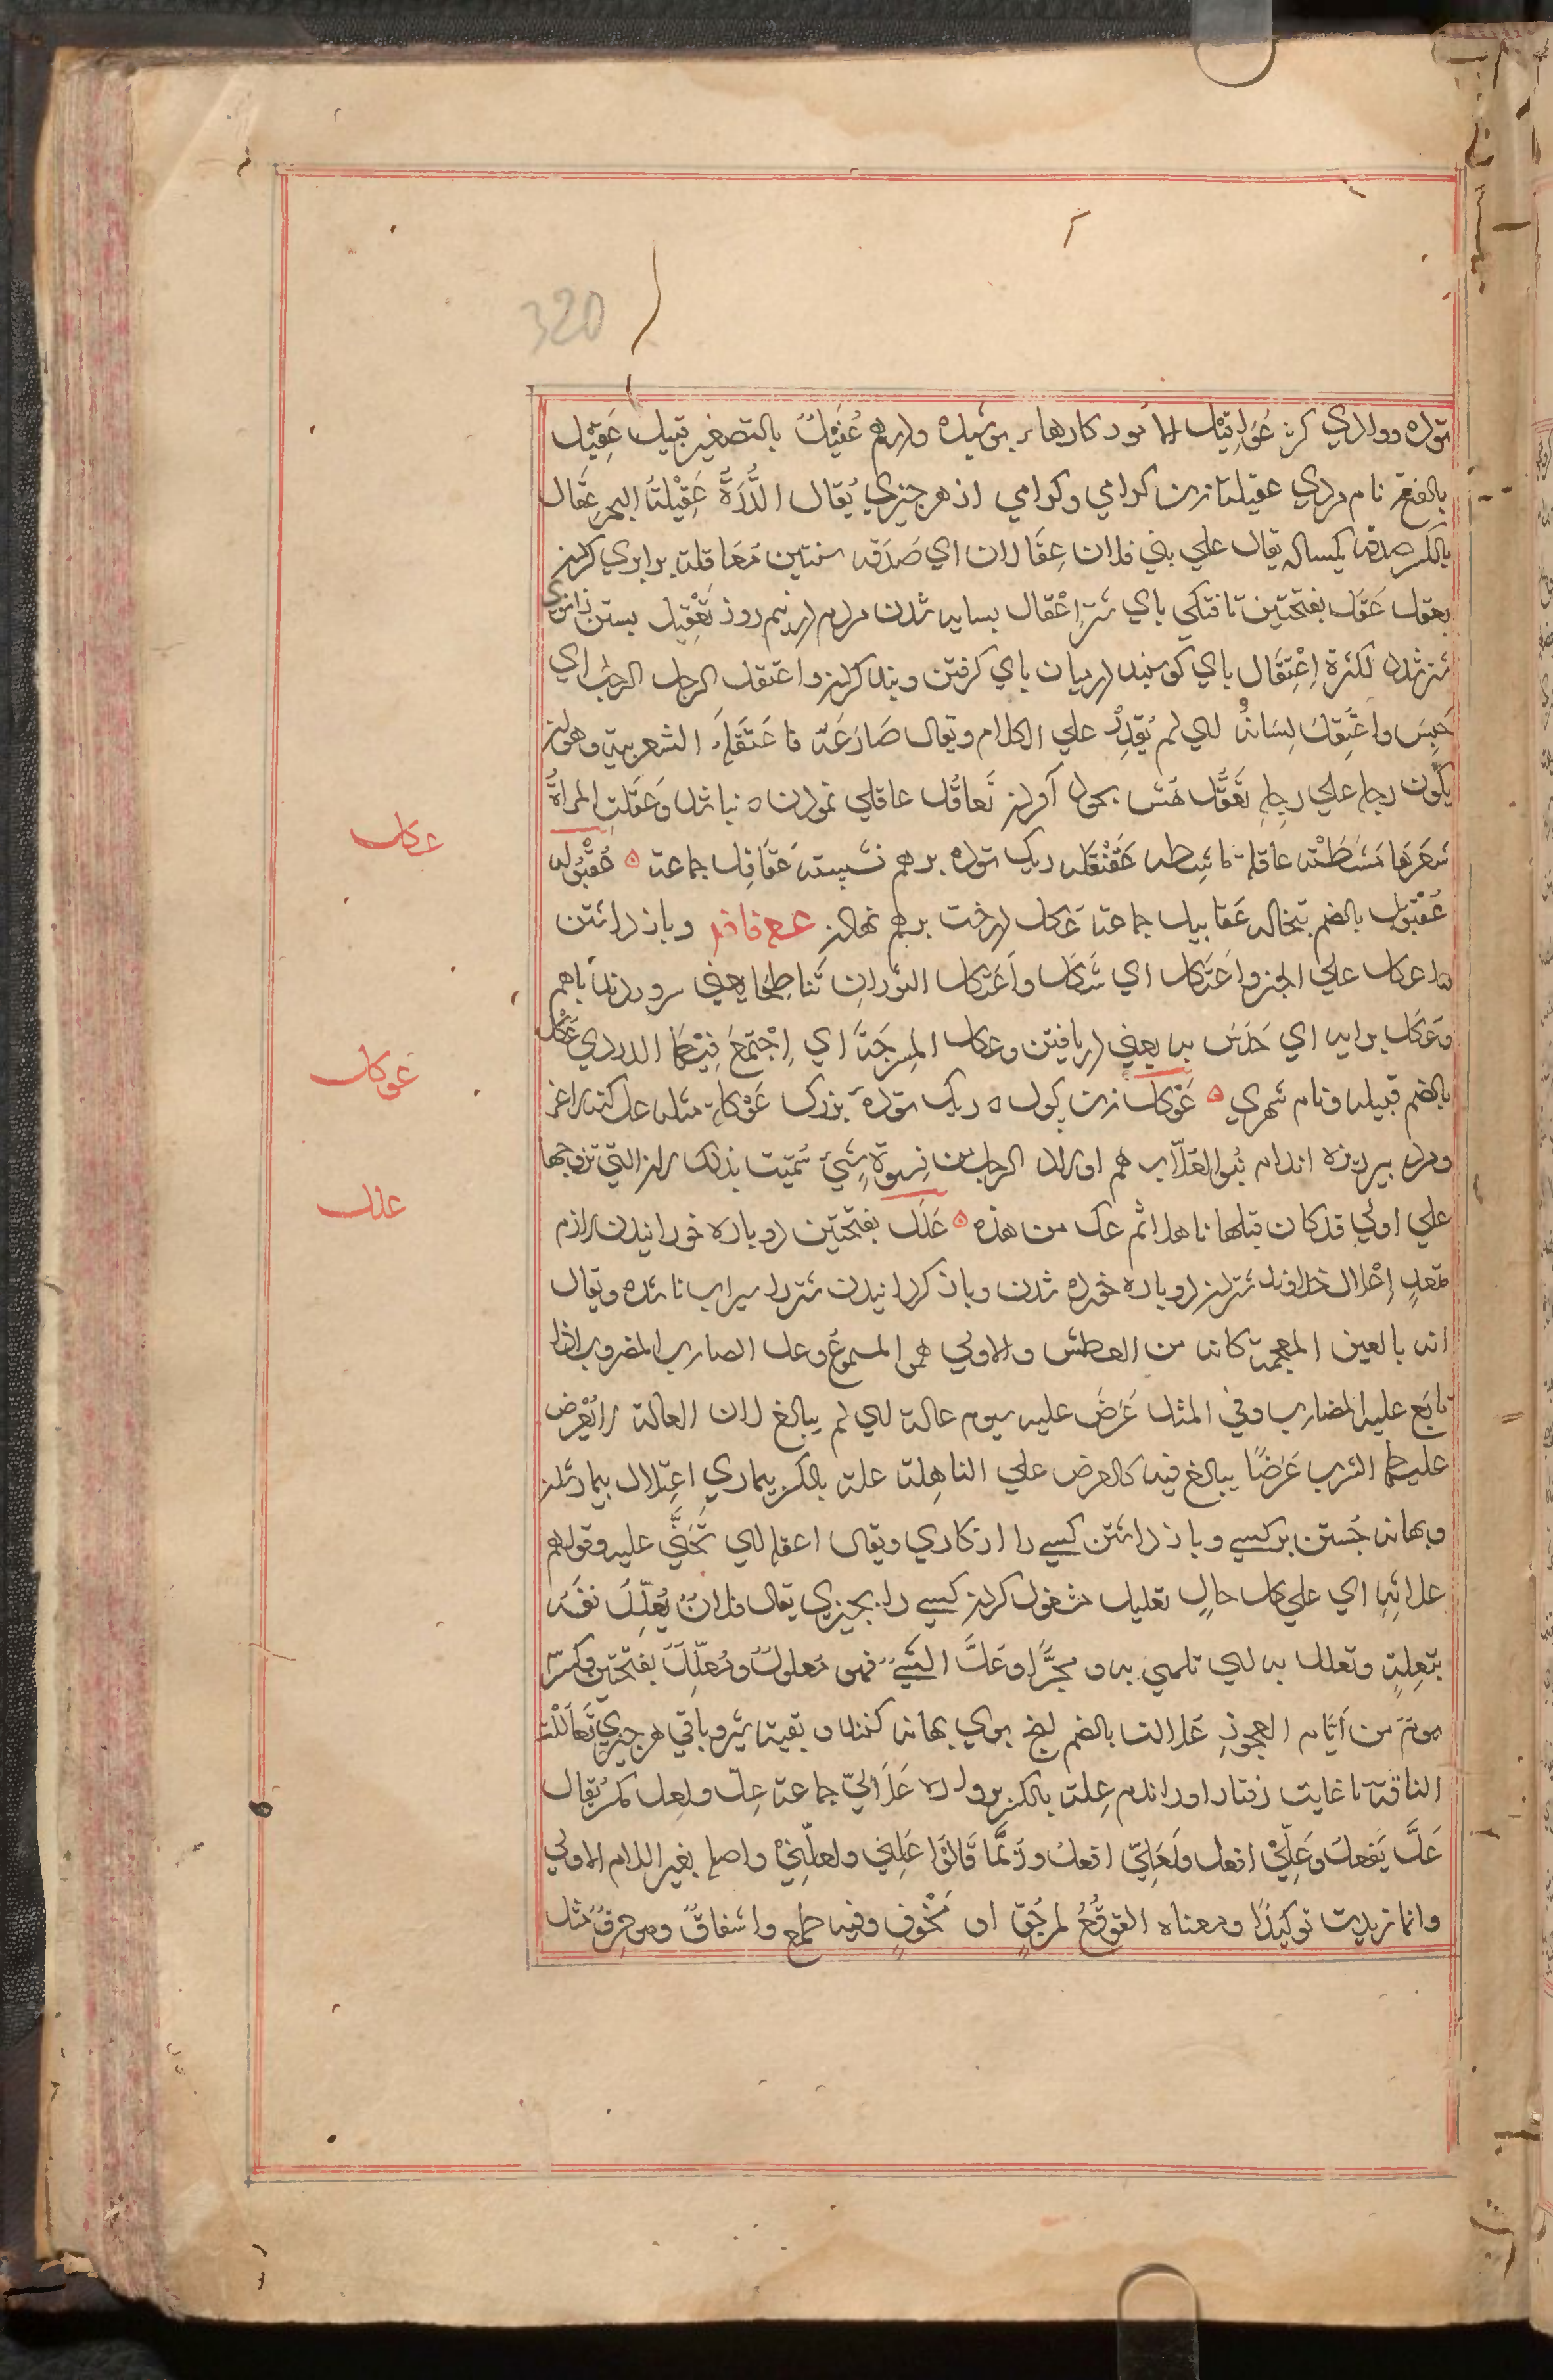 320
توده ووادي كژ عَوَاقِيْل الامور كارهاء پوشيده ودرهم عُقَيْلٌ بالتصغير قبيله عَقِيْل
بالفتح نام مردي عقيلة زن كرامي وكرامي از هر چيزي يُقال الدُّرَةُ عَقِيْلَةُ البحر عِقَال
بالكسر صدقه يكساله يقال علي بني فلان عِقَالان اي صَدَقه سنتين مُعَاقلة برابري كردن
بعقل عَقَل بفتحتين تافتكي پاي شتر اِعْقال بسايه شدن مردم در نيم روز تَعْقِيل بستن زانوي
شتر شدد لكثرة اِعْتِقَال پاي كوسفند درميان پاي كرفتن وبند كردن واعتقل الرجل الرجل اي
حَبِسَ واعْتِقلَ لِسَانُه للي لم يَقدِرْ علي الكلام ويقال صَارَعَه فاعْتَقَلَه الشعربية وهو ان
يكون رجله علي رجله تَعَقُّل هش بخود آوردن تَعاقُل عاقلي نمودن ه نباشد وَعَقلتِ المرأةُ
شَعَرَها مَشَطَتْه عاقلة ماشطه عَقَنْقَل ريك توده برهم نشسته عَقَاقِل جماعة ه عُقْبُوله
عُقْبُول بالضم تبخاله عَقَابيل جماعة عَكل درخت برهم نهادن ع ع فاقد وباز داشتن
واعكل علي الخبر واعْتَكل اي شَكل واَعْتَكل الثوران تَناطحا يعني سرو زدند باهم
وَعَكَل برايه اي حَدَسَ به يعني دريافتن وعكل المِسْرجَة اي اِجْتَمَعَ فِيْهَا الدردي عُكْل
بالضم قبيله ونام شهري ه عَوْكَل زن كول ه ريك توده بزرك عَوْكلة مثله عل كنه لاغر
ومرد پير ريزه اندام بَنُوا العَلّات هم اولاد الرجل من نِسوة شتيّ سُمّيت بذلك لان التي تزوجها
علي اولي قد كان قبلها ناهل ثم عل من هذه ه عَلَل بفتحتين دوباره خورانيدن لازم
متعدٍ اِعْلال خداوند شتران دوباره خورده شدن وباز كردانيدن شتر را سيراب ناشده ويقال
انه بالغين المعجمة كانه من العطش والاولي هو المسموع وعل الضارب المضروب اذا
تابَع عليه الضارب وفي المثل عَرَضَ عليه سوم عالة للي لم يبالغ لان العالة لا يُعْرض
عليها الشرب عَرَضًا يبالغ فيه كالعرض علي الناهِلة علة بالكسر بيماري اعتِلال بيمار شدن
وبهانه جُستن بركسي وباز داشتن كسي را از كاري ويقال اعقله للي تَجَنّي عليه وقولهم
علاتِه اي علي كل حالٍ تعليل مشغول كردن كسي را بچيزي يقال فلانٌ يُعَلِّل نفسَه
بتَعِلةٍ وتعلل به للي تلهي به و تجزَّا وعَلَّ الشَّيْءُ فهو مَعلولٌ ومُعلِّل بفتحتين وكسر
يومٌ من اَيّام العجوزِ عُلالة بالضم لنج بوي بهانه كنند و بقيه شير وباقي هر چيزي تَعالَلْت
الناقة تا غايت رفتار اورا ندم عِلة بالكسر برواره عَلَاليّ جماعة عِلّ ولعل كمر يقال
عَلَّ يَفعل وَعَلِّيْ افعل ولَعَلِيّ افعل ورُبَّما قَالُوْا عَلني ولعلّنِيْ واصله بغير اللام الاولي
وانما زيدت توكيدًا ومعناه التوقُّعُ لمرجُوّ او مخُوفٍ وفيه طمع واشفاقٌ وهو حرفٌ مثل
عكل
عوكل
علل